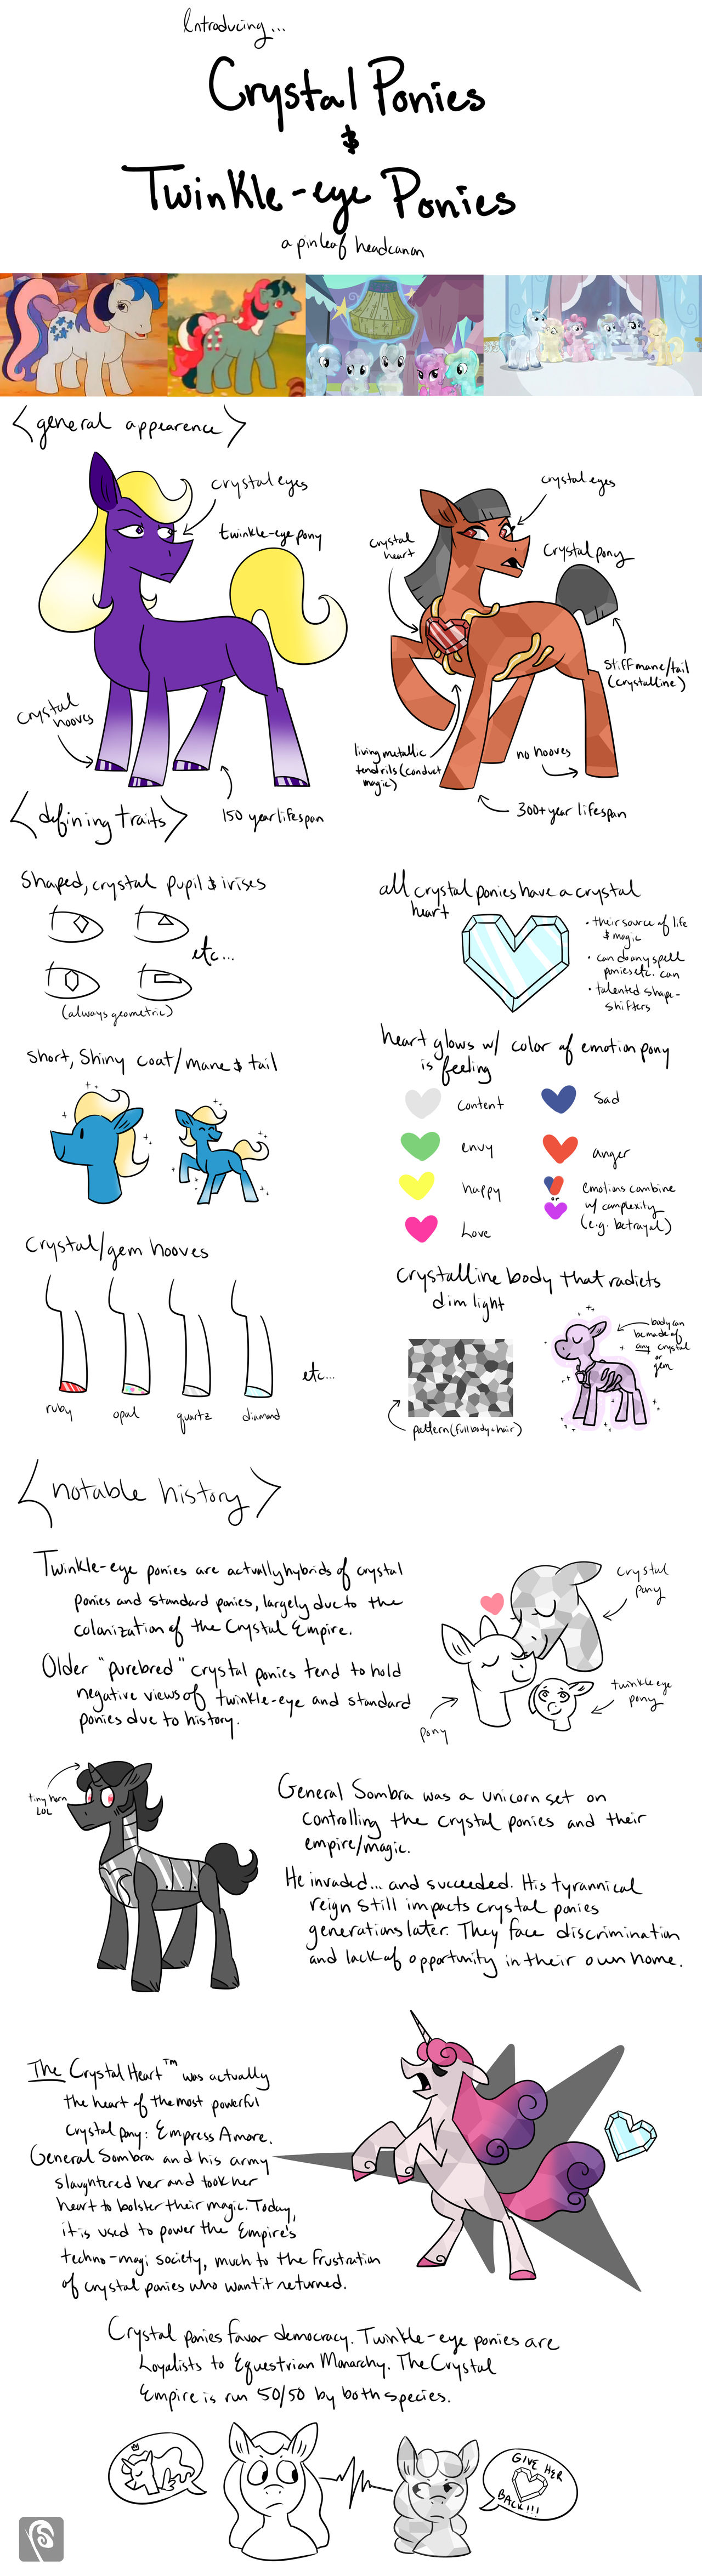 Introducing...
Crystal Ponies
&
Twinkle-eye Ponies
a pinleaf headcanon
<general appearence>
crystal eyes
twinkle-eye pony
crystal hooves
150 year lifespan
crystal eyes
crystal heart
Crystal pony
stiff mane/tail
(crystalline)
living metallic
tendrils (conduct
magic)
no hooves
300+ year lifespan
<defining traits>
Shaped, crystal pupil & irises
etc...
(always geometric)
short, shiny coat/mane & tail
Crystal/gem hooves
ruby
opal
quartz
diamond
etc...
all crystal ponies have a crystal
heart
• their source of life
& magic
• can do any spell
ponies etc. can
• talented shape-
shifters
heart glows w/ color of emotion pony
is feeling
content
Sad
envy
anger
happy
emotions combine
or
w/ complexity
(e.g. betrayal)
Love
crystalline body that radiets
dim light
body can
be made of
any crystal
or
gem
pattern (full body + hair)
<notable history>
Twinkle-eye ponies are actually hybrids of crystal
ponies and standard ponies, largely due to the
colanization of the Crystal Empire.
Older "purebred" crystal ponies tend to hold
negative views of twinkle-eye and standard
ponies due to history.
crystal
pony
twinkle eye
pony
pony
tiny horn
LOL
General Sombra was a unicorn set on
controlling the crystal ponies and their
empire/magic.
He invaded... and succeeded. His tyrannical
reign still impacts crystal ponies
generations later. They face discrimination
and lack of opportunity in their own home.
The Crystal Heart™ was actually
the heart of the most powerful
crystal pony: Empress Amore.
General Sombra and his army
slaughtered her and took her
heart to bolster their magic. Today,
it is used to power the Empire's
techno-magi society, much to the frustration
of crystal ponies who want it returned.
Crystal ponies favor democracy. Twinkle-eye ponies are
Loyalists to Equestrian Monarchy. The Crystal
Empire is run 50/50 by both species.
GIVE HER
BACK!!!